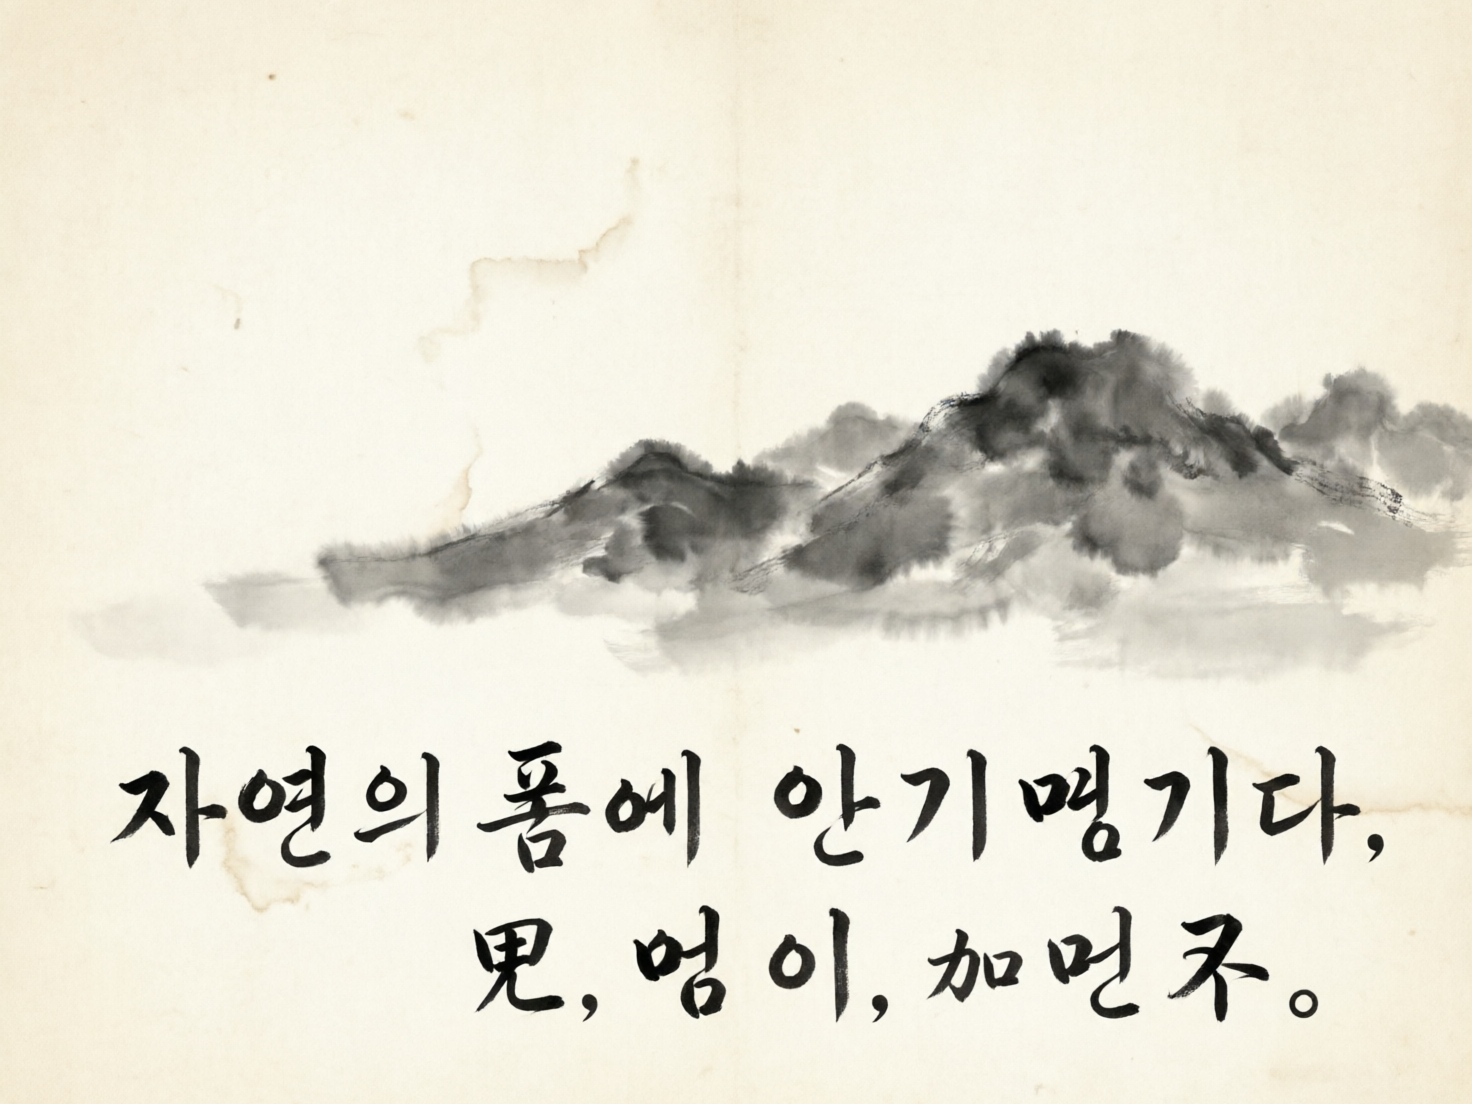 자연의 품에 안기명기다,
멈이, 加먼不。